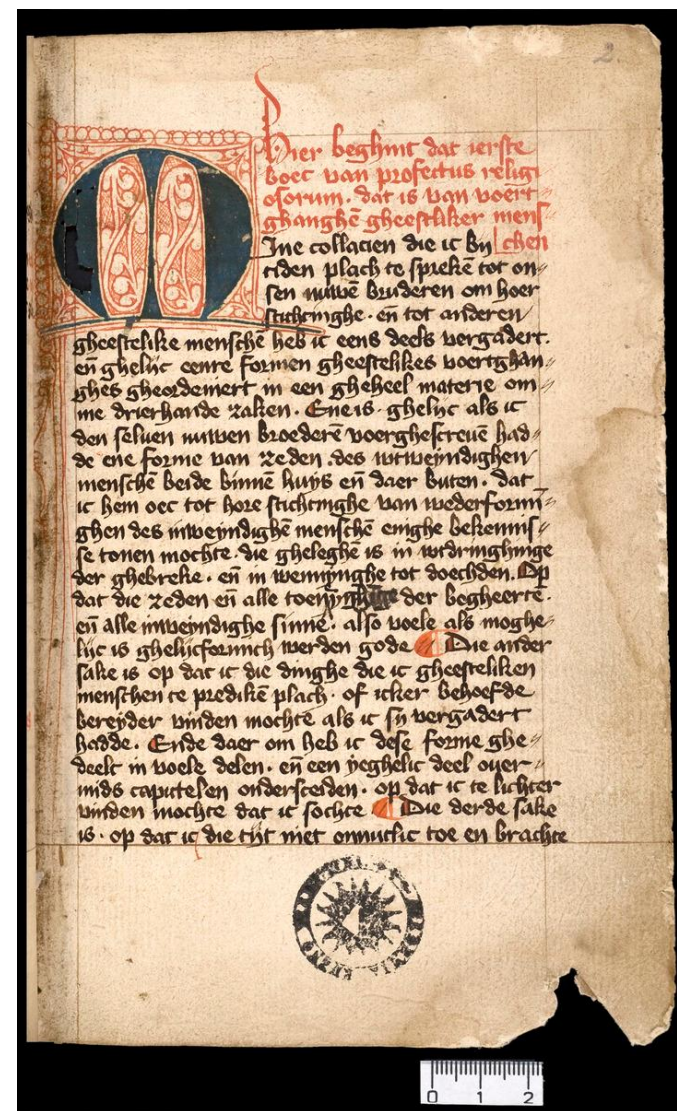 2.
Hier beghint dat ierste
boec van profectus religi
osorum. dat is van voert
ghanghē gheestliker mens
chen
MIne collacien die ic bij
tiden plach te sprekē tot on〃
sen nuwē bruderen om hoer
stichtinghe. eñ tot anderen
gheestelike menschē heb ic eens deels vergadert.
eñ ghelijc eenre formen gheestelikes voertghan〃
ghes gheordeniert in een gheheel materie om〃
me drierhande zaken. Ene is. ghelijc als ic
den seluen nuwen broederē voerghescreuē had〃
de ene forme van zeden. des wtweyndighen
menschē beide binnē huys eñ daer buten. dat
ic hem oec tot hore stichtinghe van wederformī〃
ghen des inweyndighē menschē enighe bekennis〃
se tonen mochte. die gheleghē is in wtdringhinge
der ghebreke. eñ in wennynghe tot doechden. Op
dat die zeden eñ alle der begheerte.
eñ alle inweyndighe sinnē. also voele als moghe〃
lijc is ghelijcformich werden gode ¶ Die ander
sake is op dat ic die dinghe die ic gheesteliken
menschen te predikē plach. of icker behoefde
bereyder vinden mochte als ic sy vergadert
hadde. Ende daer om heb ic dese forme ghe〃
deelt in voele delen. eñ een yeghelic deel ouer〃
mids capitelen ondersceiden. op dat ic te lichter
vinden mochte dat ic sochte ¶ Die derde sake
is. op dat ic die tijt niet onnutlic toe en brachte
0 1 2